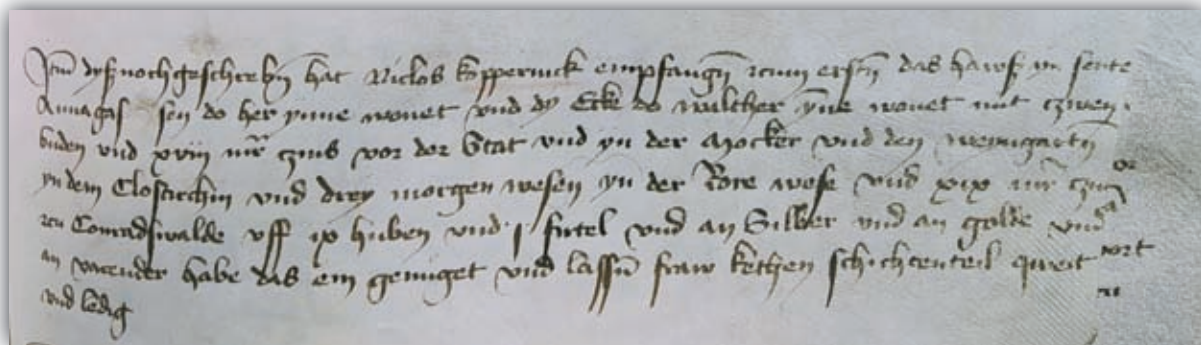 Jtm dys nochgeschrebn hat Niclos Koppernick empfangn czum erstn das haws yn sente
Annagassen do her ynne wonet vnd dy Ecke do walther yne wonet mit czwen
buden vnd xviij mr czins vor der Stat vnd yn der Mocker vnd den weingartn
yn dem Closterchin vnd drey morgen wesen yn der Rore wese vnd xix mr czins
czu Conradswalde vff ix huben vnd j firtel vnd an Silber vnd an golde vnd
an varender habe das em genuget vnd lassn fraw kethen schichtenteil qweit
vnd ledig